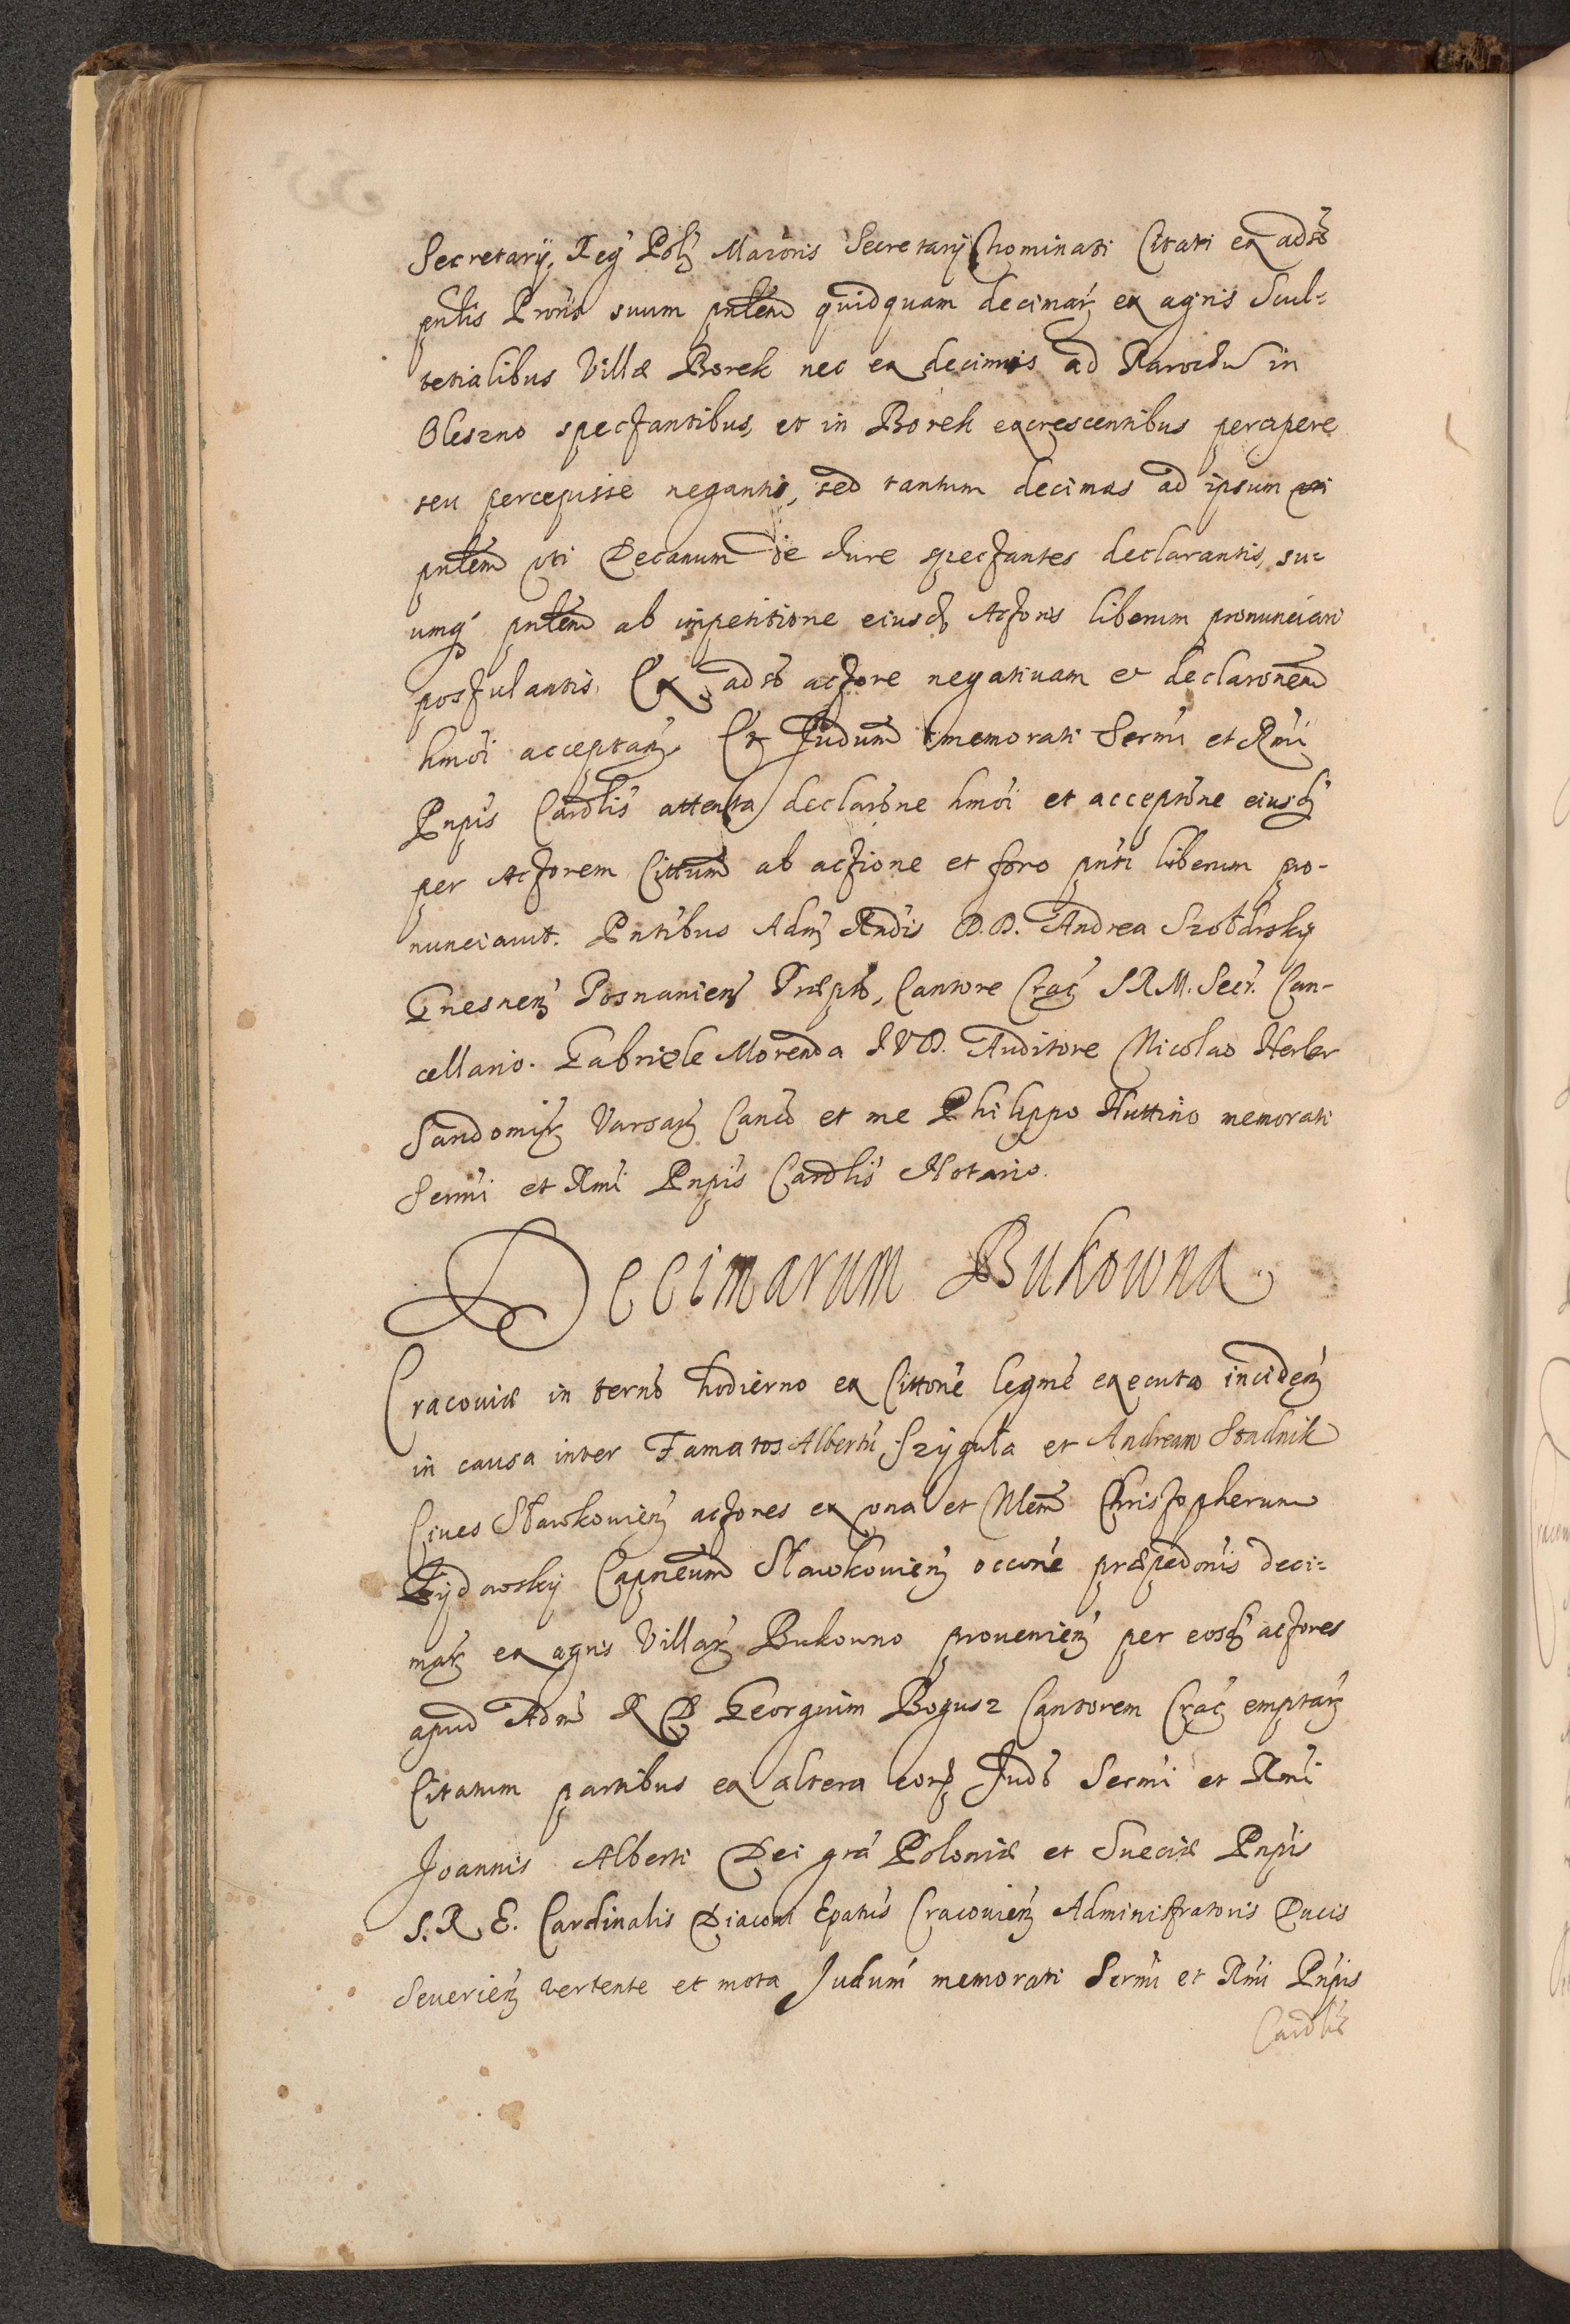 Secretarÿ, Reg̃ Pol̃ Maioris Secretarÿ nominati Citati ex adṽo
pñlis Prõris suum pñlem quidquam decimar̃ ex agris Scul=
tetialibus Villæ Borek nec ex decimis ad Parochũ in
Oleszno spectantibus, et in Borek excrescentibus percipere
seu percepisse negantis, sed tantum decimas ad ipsum
pñlem vti Decanum de Jure spectantes declarantis, su=
umq́ pñlem ab impetitione eiusd̃ Actoris liberum pronunciari
postulantis. Ex adṽo actore negatiuam et declarõnem
hmõi acceptañ. Et Judũm memorati Serm̃i et Rm̃i
Pñpis Cardlis attenta declarõne hmõi et acceptõne eiusd̃
per Actorem Cittum ab actione et foro pñti liberum pro-
nunciauit. Pntibus Adm̃ Rndis D.D. Andrea Szołdrsky
Gnesnen̄ Posnanien̄ Præpto, Cantore Crac̃ S R M. Secr̃. Can-
cellario. Gabriele Morenda J V D. Auditore Nicolao Herber
Sandomir̃ Varsav̄ Canco et me Philippo Huttino memorati
Serm̃i et Rm̃i Pñpis Cardlis Notario.
Decimarum Bukowna
Cracouiæ in termo hodierno ex Cittone legmé executa inciden̄
in causa inter Famatos Albertũ Szyguła et Andream Stadnik
Ciues Sławkouien̄ actores ex vna et Nlem Christopherum
Zÿdowskÿ Capneum Sławkouien̄ occõne præpedonis deci=
mar̃ ex agris Villar̃ Bukouno prouenien̄ per eosd̃ actores
apud Adm̃ R D Georgium Bogusz Cantorem Crac̃ emptar̃
Citatum partibus ex altera corã Judõ Serm̃i et Rm̃i
Joannis Alberti Dei grã Poloniæ et Sueciæ Pñpis
S. R. E. Cardinalis Diaconi Epatus Cracouien̄ Administratoris Ducis
Seuerien̄ vertente et mota Judum̃ memorati Serm̃i et Rm̃i Pñpis
Cardlis